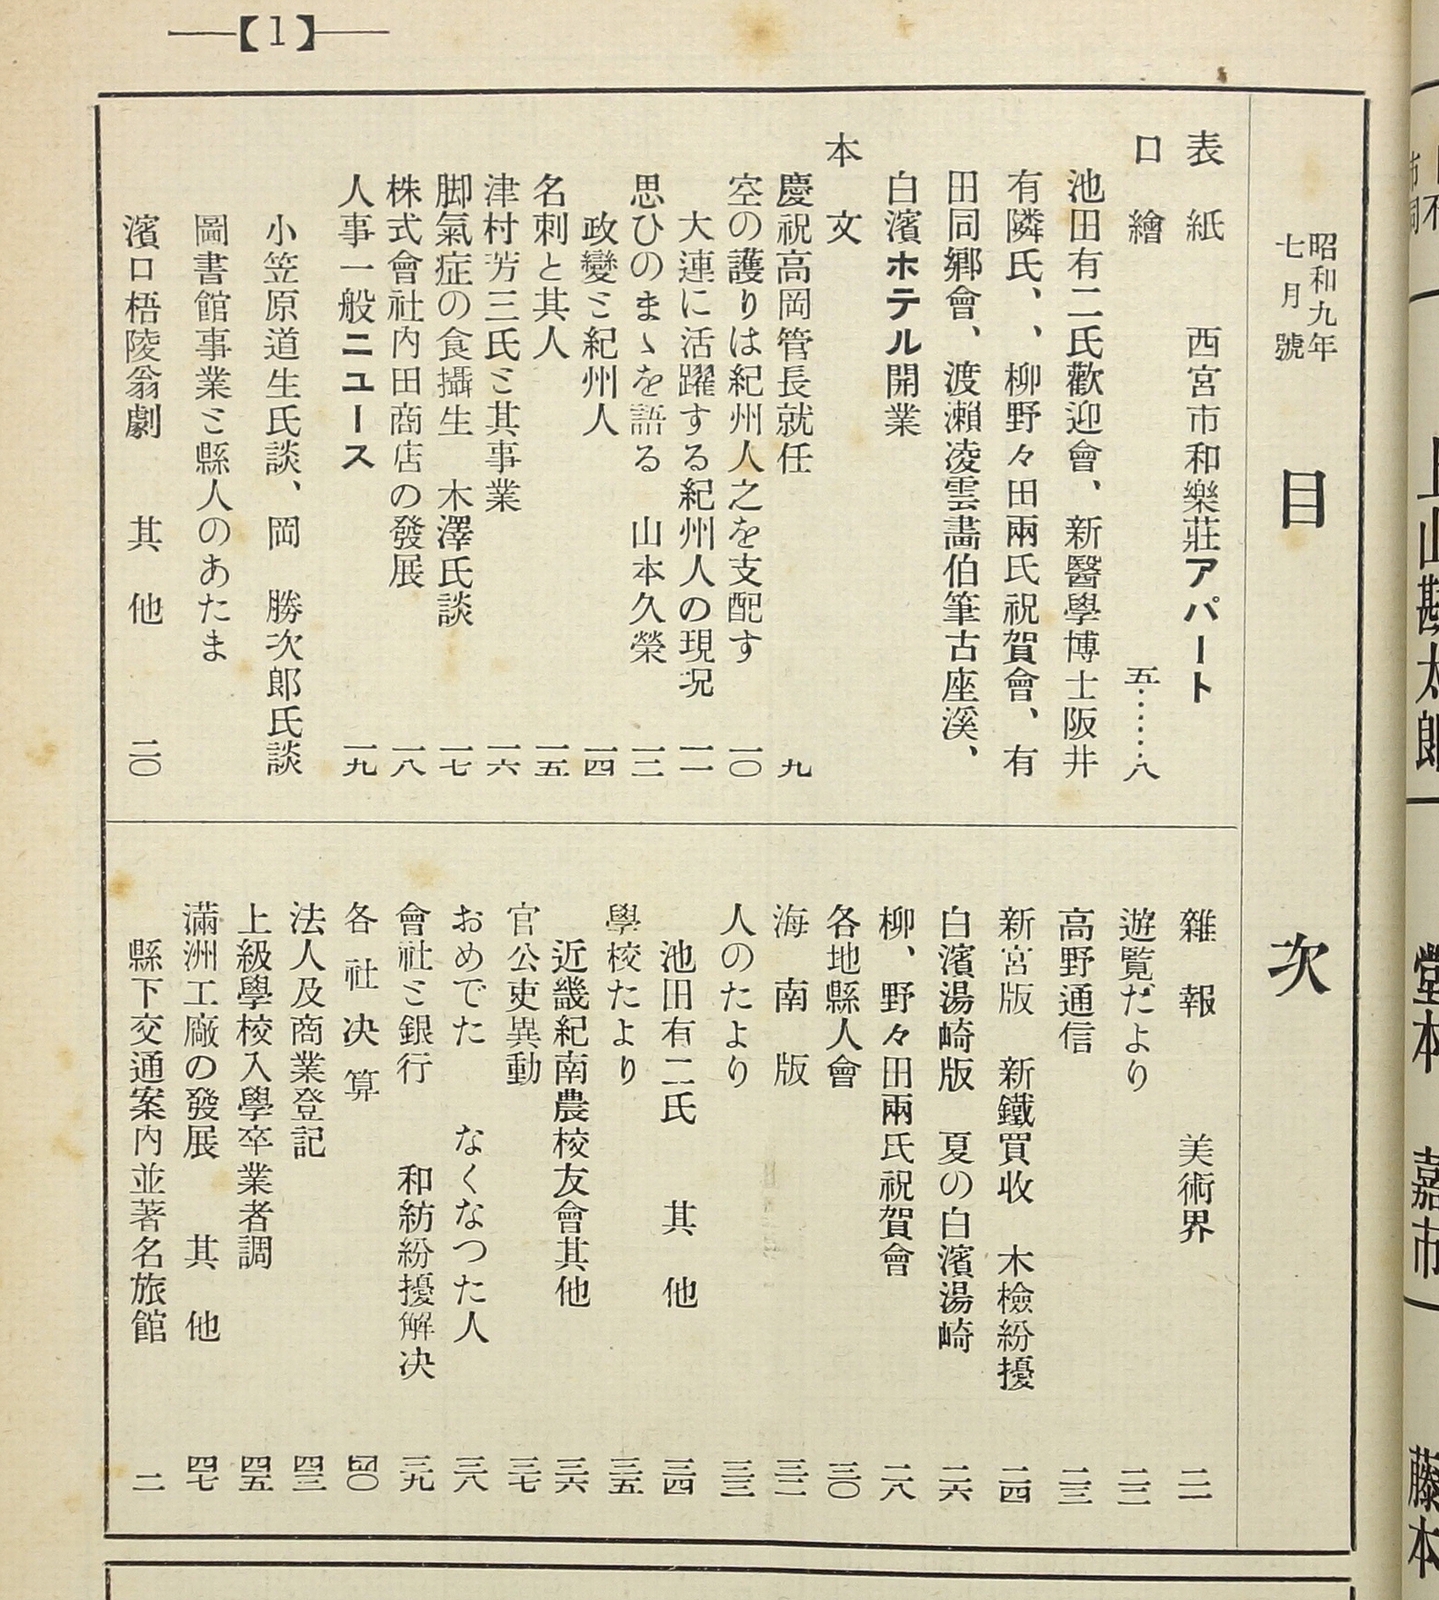 【1】
昭和九年
七月號
目次
表紙 西宮市和樂莊アパート
口繪 五……八
池田有二氏歡迎會、新醫學博士阪井
有隣氏、、柳野々田兩氏祝賀會、有
田同鄉會、渡瀨凌雲畵伯筆古座溪、
白濱ホテル開業
本文
慶祝高岡管長就任 九
空の護りは紀州人之を支配す 一〇
大連に活躍する紀州人の現况 一一
思ひのまゝを語る 山本久榮 一二
政變と紀州人 一四
名刺と其人 一五
津村芳三氏と其事業 一六
脚氣症の食攝生 木澤氏談 一七
株式會社内田商店の發展 一八
人事一般ニユース 一九
小笠原道生氏談、岡 勝次郎氏談
圖書館事業と縣人のあたま
濱口梧陵翁劇 其他 二〇
雜報 美術界 二一
遊覧だより 二二
高野通信 二三
新宮版 新鐵買收 木檢紛擾 二四
白濱湯崎版 夏の白濱湯崎 二六
柳、野々田兩氏祝賀會 二八
各地縣人會 三〇
海南版 三二
人のたより 三三
池田有二氏 其他 三四
學校たより 三五
近畿紀南農校友會其他 三六
官公吏異動 三七
おめでた なくなつた人 三八
會社と銀行 和紡紛擾解决 三九
各社决算 四〇
法人及商業登記 四三
上級學校入學卒業者調 四五
滿洲工廠の發展 其他 四七
縣下交通案内並著名旅館 二
上山勘太郎
堂本 嘉市
藤本